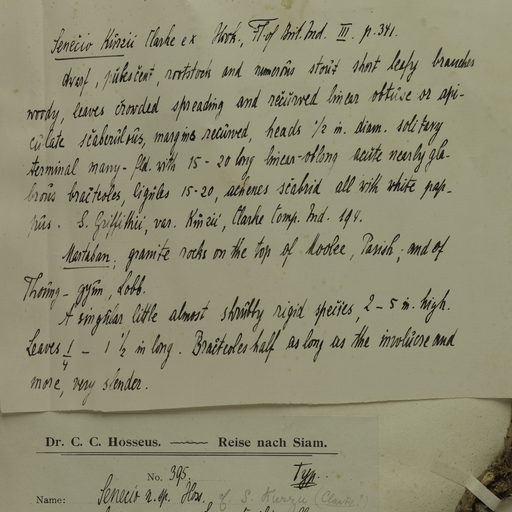 Senecio Kurzii Clarke ex Hook., Fl. of Brit. Ind. III. p. 341.
dwarf, pubescent, rootstock and numerous stout short leafy branches
woody, leaves crowded spreading and recurved linear obtuse or api-
culate scaberulous, margins recurved, heads 1/2 in. diam. solitary
terminal many-fld. with 15-20 long linear-oblong acute nearly gla-
brous bracteoles, ligules 15-20, achenes scabrid all with white pap-
pus. S. Griffithii, var. Kurzii, Clarke Comp. Ind. 194.
Martaban; granite rocks on the top of Moolee, Parish; and of
Thoung-gyun, Lobb.
A singular little almost shrubby rigid species, 2-5 in. high.
Leaves 1/4 - 1 1/2 in long. Bracteoles half as long as the involucre and
more, very slender.
Dr. C. C. Hosseus. Reise nach Siam.
No. 395. Typ.
Name: Senecio n. sp. Hoss. cf S. Kurzii (Clarke?)